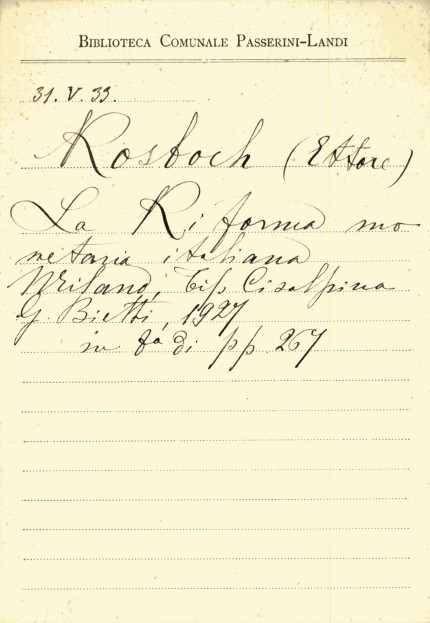 BIBLIOTECA COMUNALE PASSERINI-LANDI
31. V. 33.
Rosboch (Ettore)
La Riforma mo
netaria italiana
Milano, Tip. Cisalpina
G. Bietti, 1927
in 8° di pp. 267